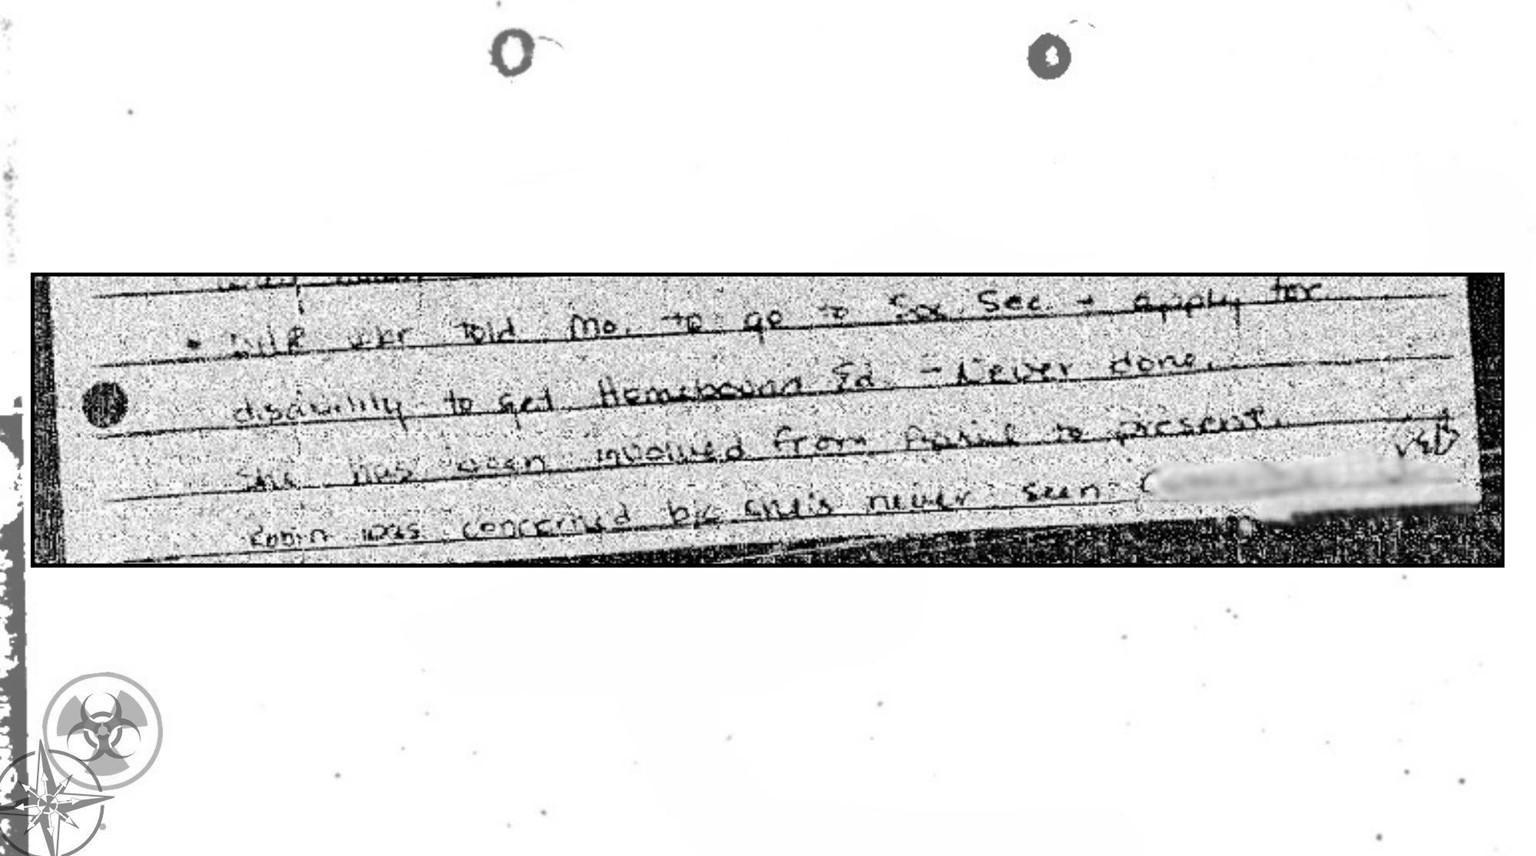 • wkr told Mo. to go to Soc. Sec. + apply for
disability to get Homebound Ed. - Never done.
She has been involved from April to present.
Robin was concerned b/c she's never seen